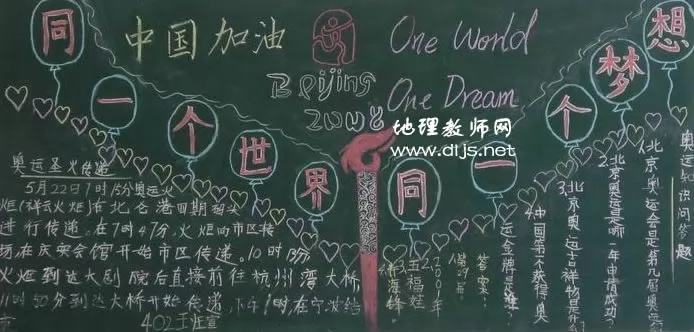 中国加油
One World
One Dream
Beijing
2008
同一个世界
同一个梦想
地理教师网
www.dljs.net
奥运圣火传递
5月22日7时15分奥运火
炬(祥云火炬)在北仑港四期码头
进行传递。在7时47分，火炬向市区转
场在庆安会馆开始市区传递。10时13分
火炬到达大剧院后直接前往杭州湾大桥
11时50分到达大桥开始传递，下午1时，在宁波结
402王
奥运知识问答题
1.北京奥运会是第几届奥运
2.北京奥运是哪一年申请成功?
3.北京奥运吉祥物是什
4.中国第一个获得奥
运会牌是谁?
答案:
1.第29届
2.2001年
3.五福娃
4.许海锋